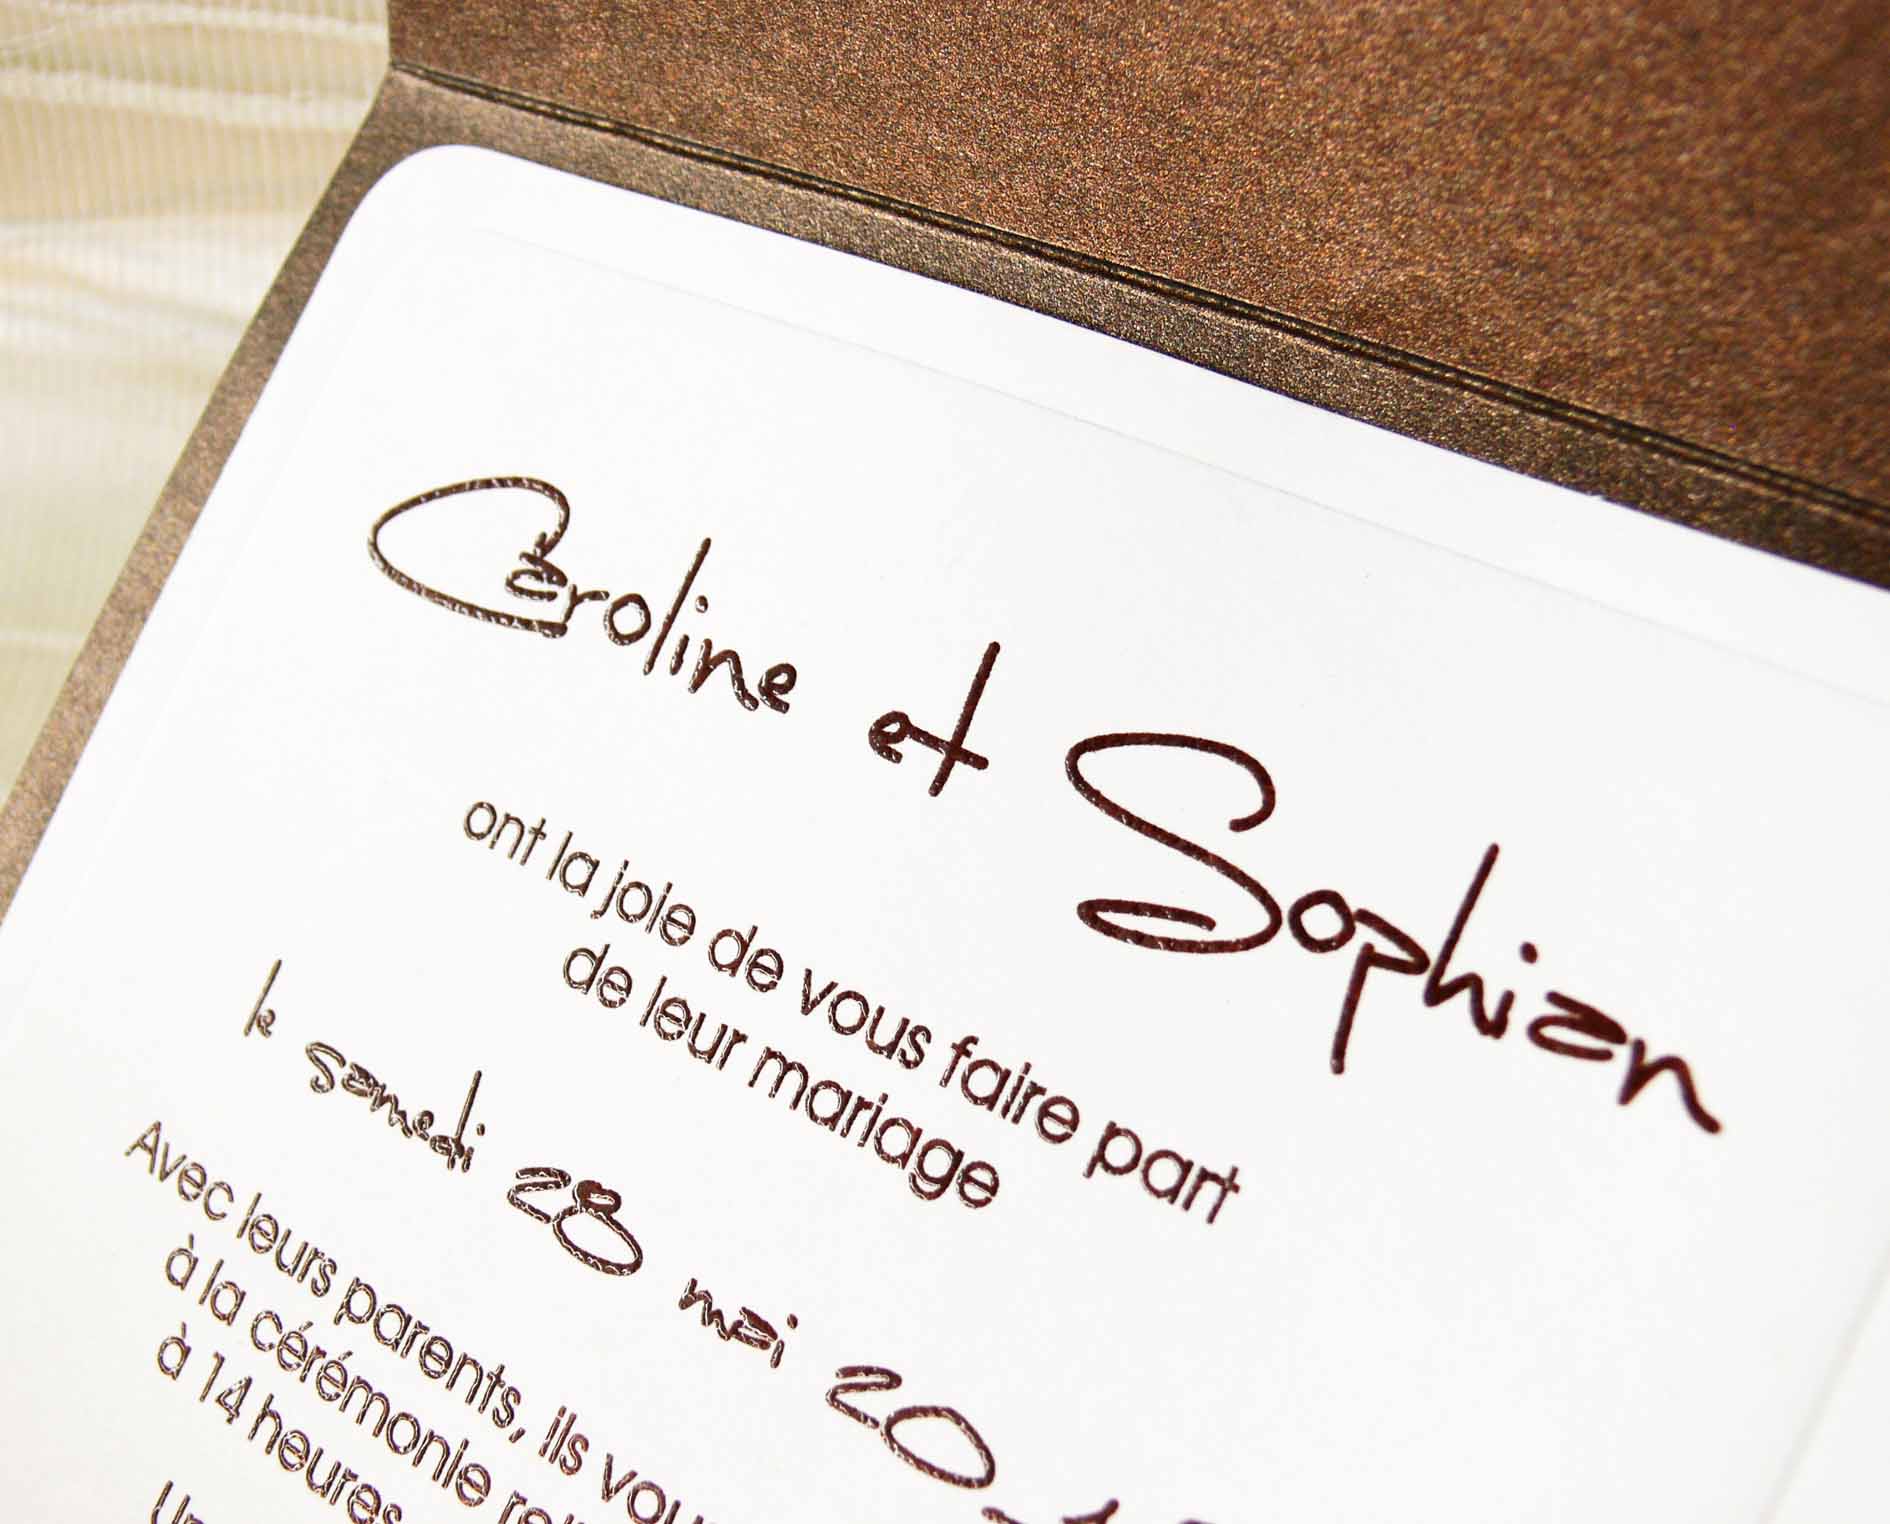 Caroline et Sophian
ont la joie de vous faire part
de leur mariage
le samedi 28 mai 20
Avec leurs parents, ils vous
à la cérémonie
à 14 heures